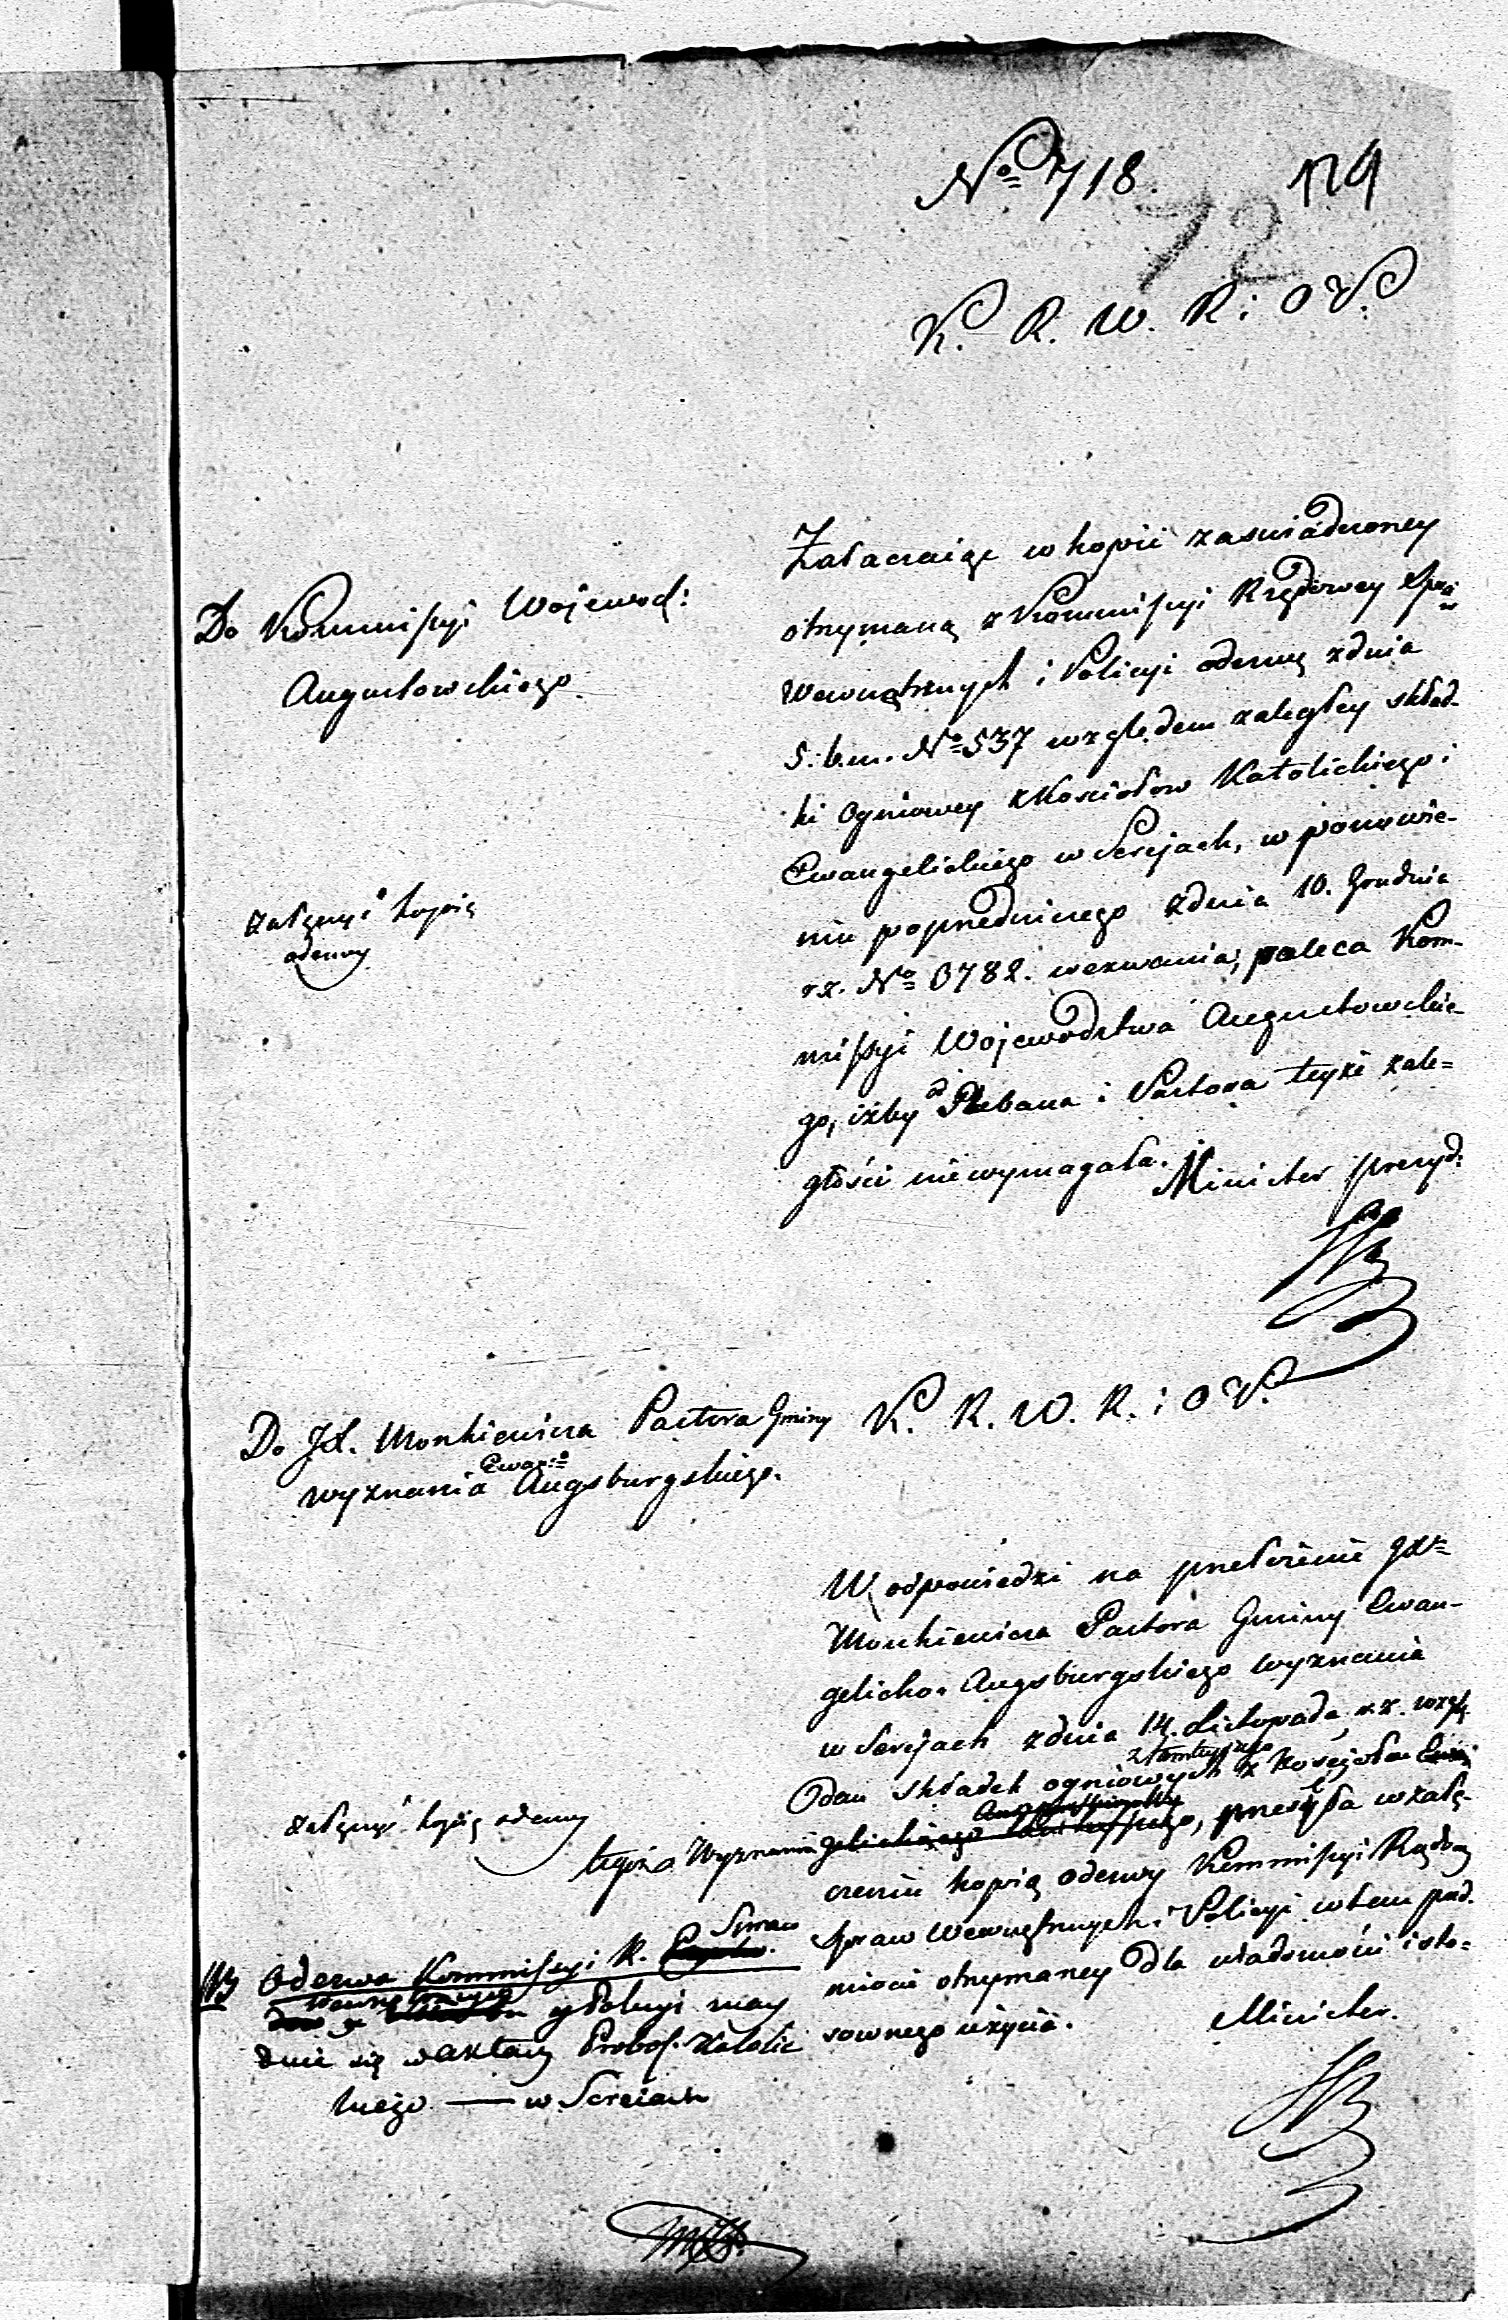 No 718.
124
72
K. R. W. R. i O. P.
Do Kommissyi Wojewod:
Augustowskiego.
Załączaiąc w kopii zaswiadczoney
otrzymaną z Kommissyi Rządowey Spraw
Wewnętrznych i Policyi odezwę z dnia
5. b. m. No 537 względem zaległey skład-
ki Ogniowey z Kosciołow Katolickiego i
Ewangelickiego w Serejach, w ponowie-
niu poprzedniczego z dnia 10. Grudnia
r. z. No 6782. wezwania, poleca Kom-
missyi Wojewodztwa Augustowskie-
go, iżby od Plebana i Pastora teyże zale-
głości nie wymagała.
Minister prezyd:
załączyć kopię
odezwy
Do JX. Monkiewicza Pastora Gminy
wyznania Ewan: Augsburgskiego.
K. R. W. R. i O. P.
W odpowiedzi na przełożenie JX
Monkiewicza Pastora Gminy Ewan-
gelicko-Augsburgskiego wyznania
w Serejach z dnia 14. Listopada r. z. wzglę-
dem składek ogniowych z tamtejszego Koscioła
tegoż Wyznania, przesyła w załą-
czeniu kopią odezwy Kommissyi Rządowey
Spraw Wewnętrznych i Policyi w tem przed-
miocie otrzymaney dla wiadomości i sto-
sownego użycia.
Minister.
załączyć kopię odezwy
NB Odezwa Kommissyi R. Spraw
Wewnętrznych y Policyi znay
duie się w aktach Probos. Katolic
kiego — w Sereiach